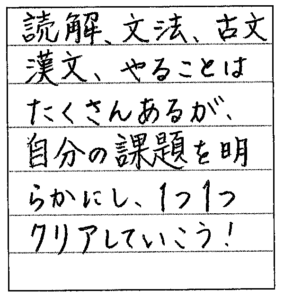 読解、文法、古文
漢文、やることは
たくさんあるが、
自分の課題を明
らかにし、1つ1つ
クリアしていこう!